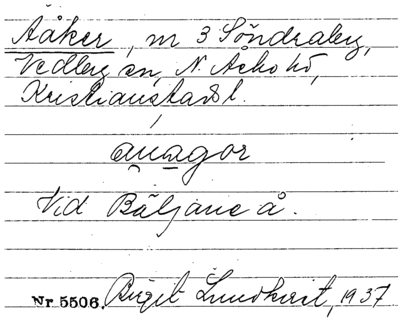 Aåker, m 3 Söndraby,
Vedby sn, N. Åsbo hd,
Kristianstads l.
anagor
Vid Bäljane å.
Nr 5506. Birgit Lundkvist, 1937